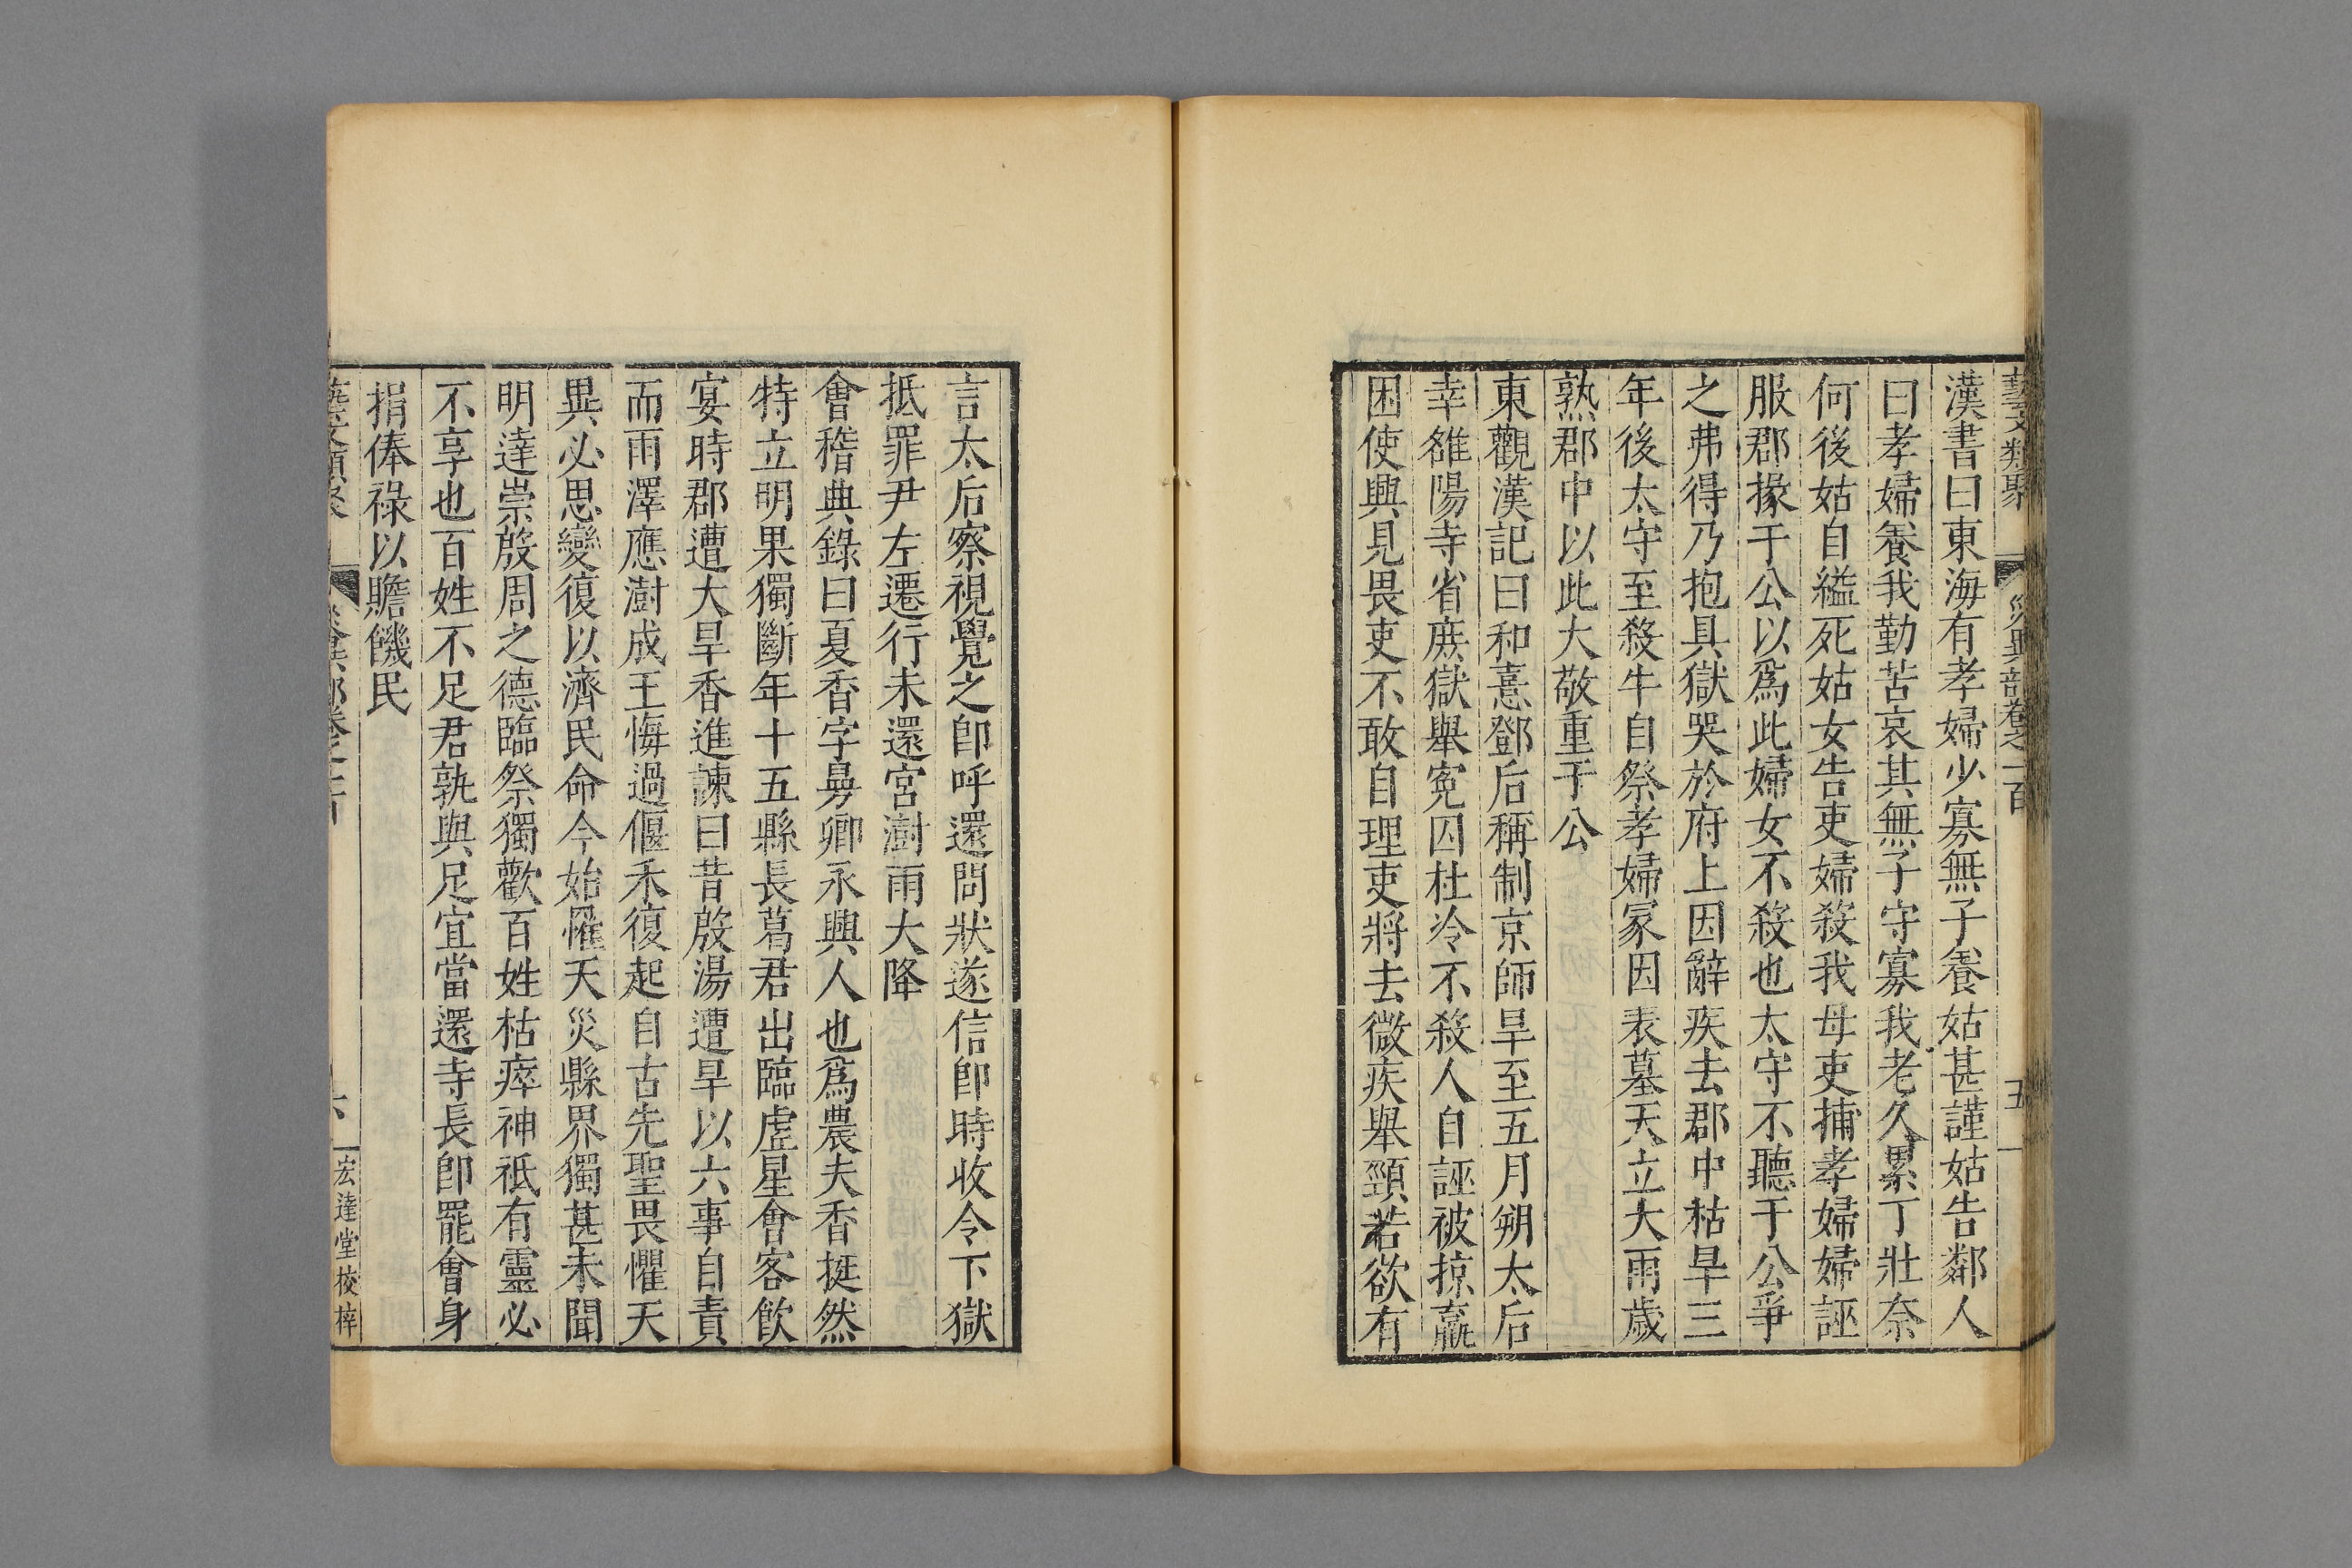 藝文類聚 災異部卷之一百 五
漢書曰東海有孝婦少寡無子養姑甚謹姑告鄰人
曰孝婦養我勤苦哀其無子守寡我老久累丁壯奈
何後姑自縊死姑女告吏婦殺我母吏捕孝婦婦誣
服郡掾于公以爲此婦女不殺也太守不聽于公爭
之弗得乃抱具獄哭於府上因辭疾去郡中枯旱三
年後太守至殺牛自祭孝婦冢因表墓天立大雨歲
熟郡中以此大敬重于公
東觀漢記曰和憙鄧后稱制京師旱至五月朔太后
幸雒陽寺省庶獄舉寃囚杜泠不殺人自誣被掠羸
困使輿見畏吏不敢自理吏將去微疾舉頸若欲有
言太后察視覺之卽呼還問狀遂信卽時收令下獄
抵罪尹左遷行未還宮澍雨大降
會稽典錄曰夏香字曼卿永興人也爲農夫香挺然
特立明果獨斷年十五縣長葛君出臨虛星會客飮
宴時郡遭大旱香進諫曰昔殷湯遭旱以六事自責
而雨澤應澍成王悔過偃禾復起自古先聖畏懼天
異必思變復以濟民命今始罹天災縣界獨甚未聞
明達崇殷周之德臨祭獨歡百姓枯瘁神祇有靈必
不享也百姓不足君孰與足宜當還寺長卽罷會身
捐俸祿以贍饑民
宏達堂校梓